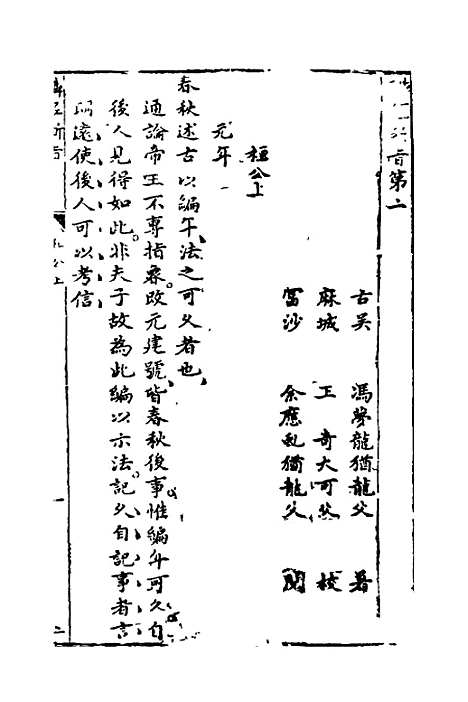 音第二
古吴　馮夢龍猶龍父　著
麻城　王奇大可父　校
富沙　余應虬猶龍父　閱
桓公上
元年
春秋述古以編年法之可久者也
通論帝王不專指春改元建號皆春秋後事惟編年可久自
後人見得如此非夫子故為此編以示法記久自記事者言
綿遠使後人可以考信
公上
一
二